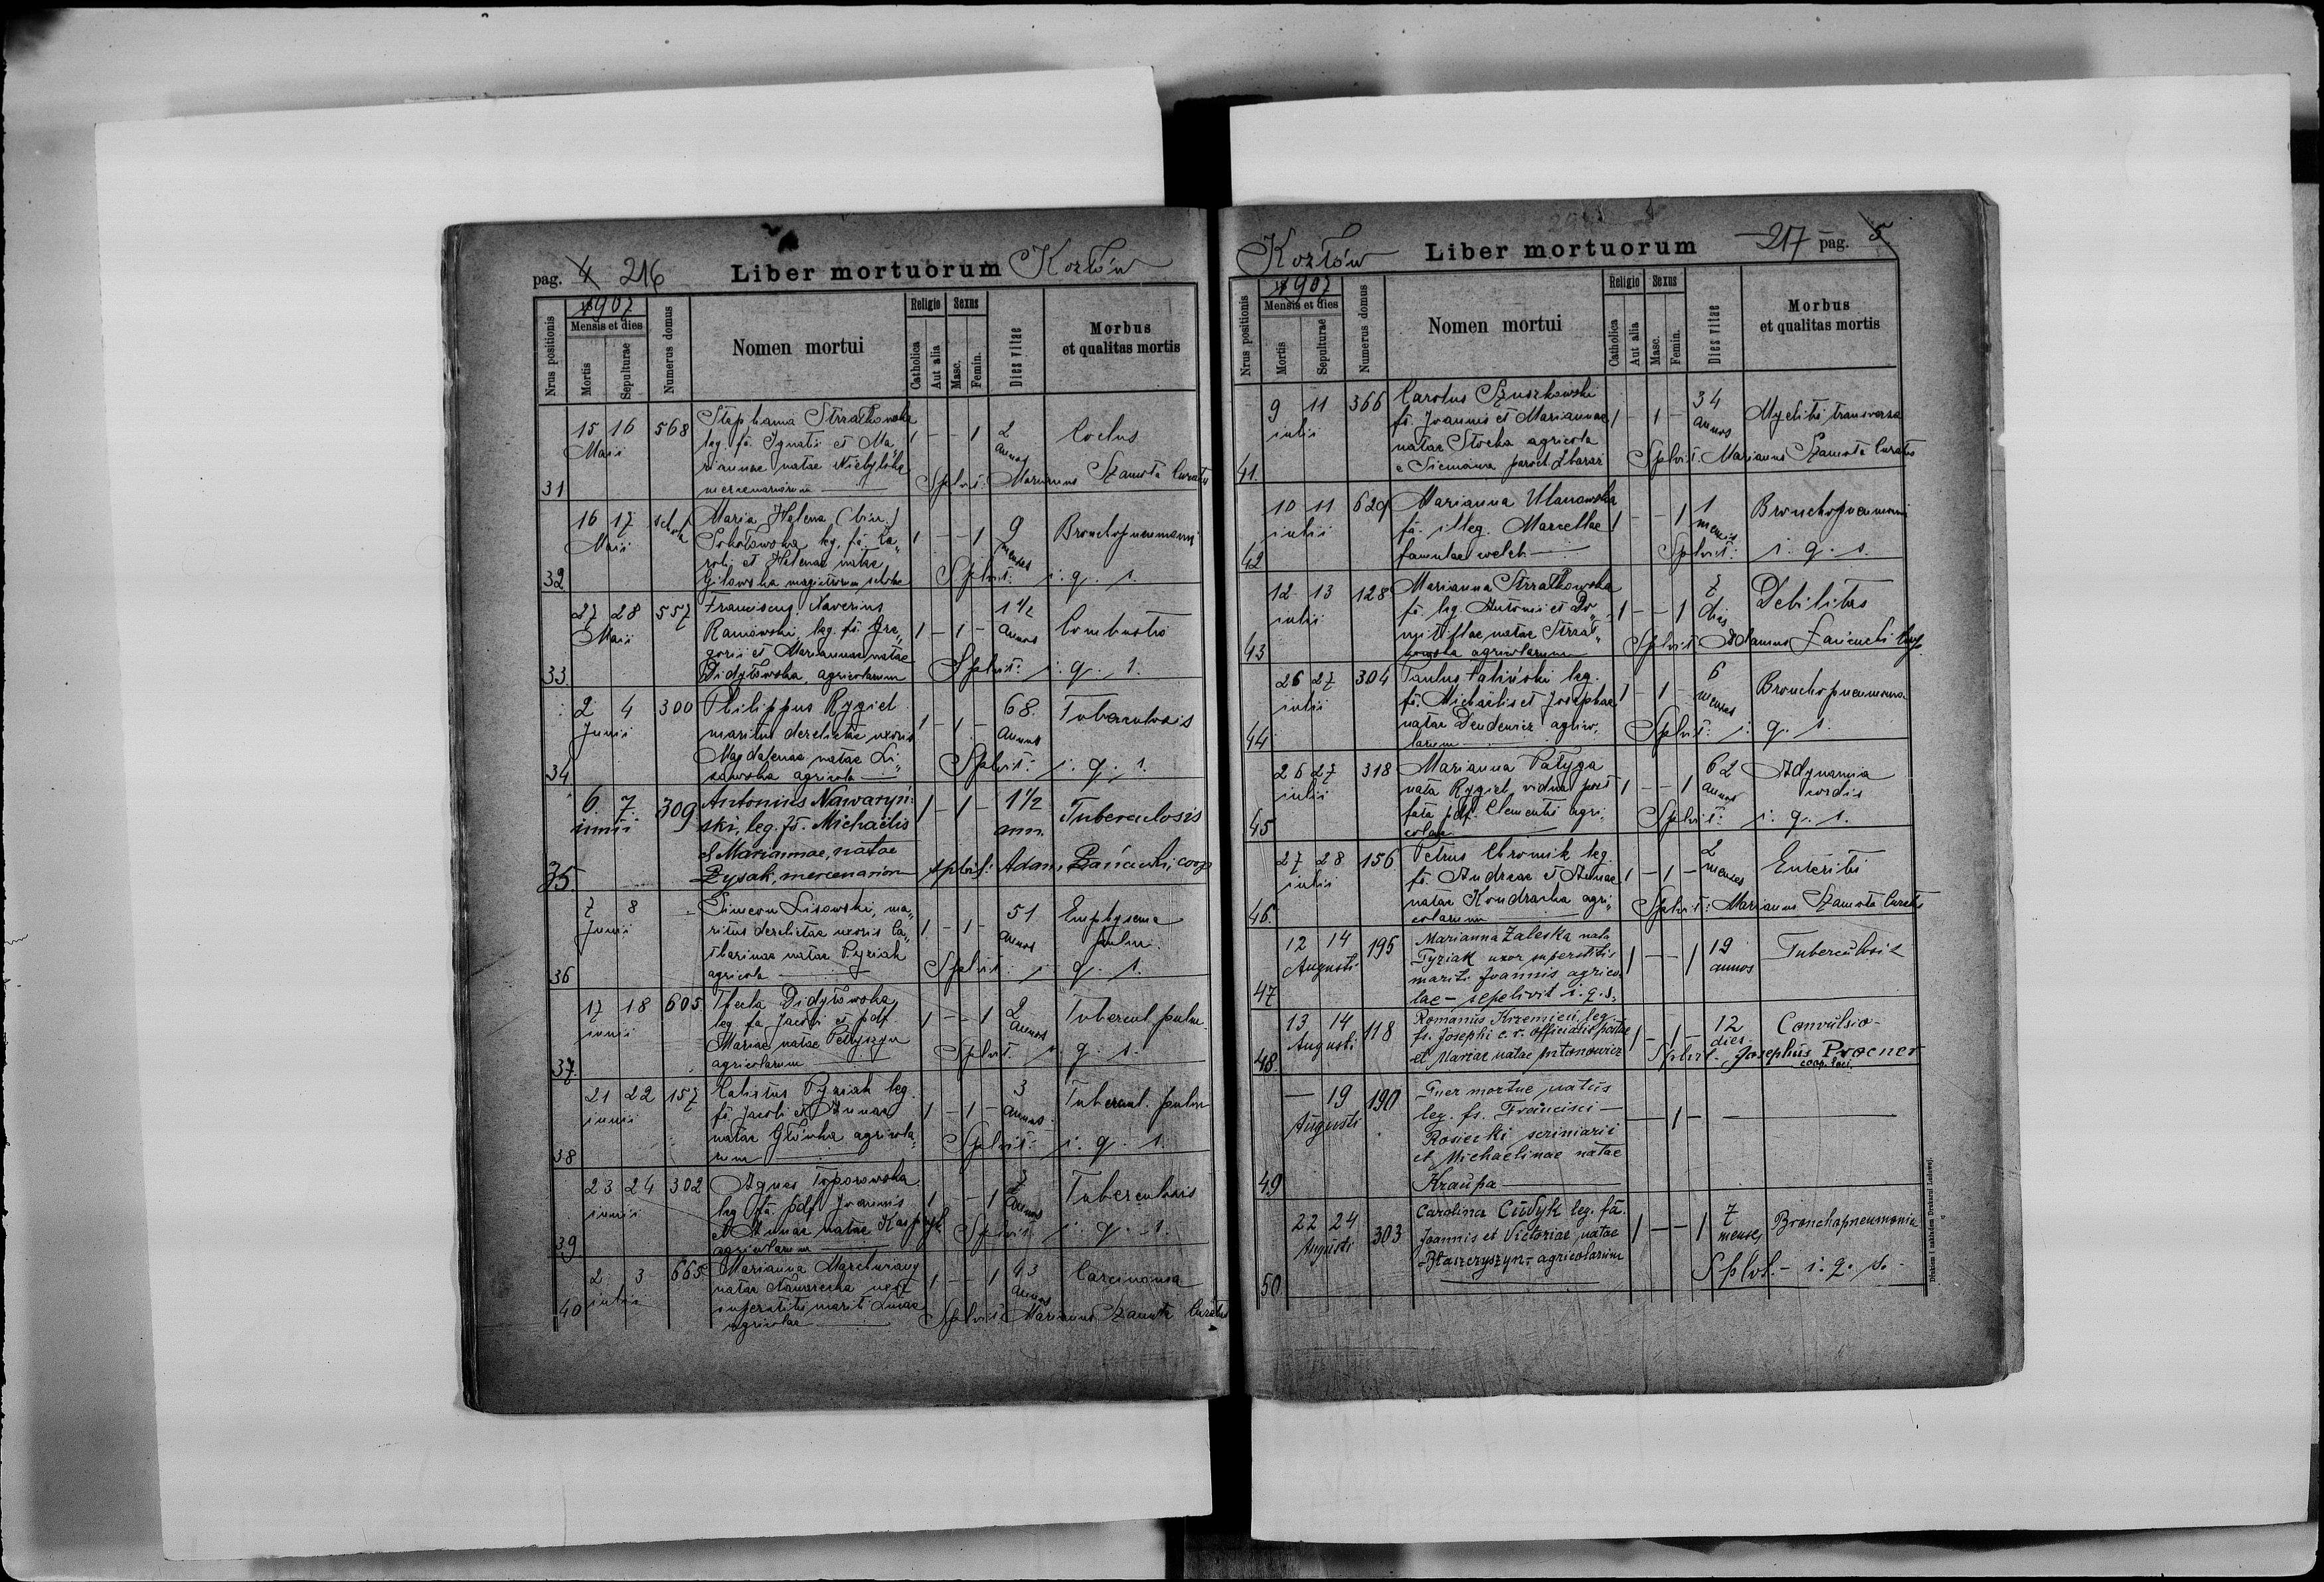 pag. 4 216 Liber mortuorum Kozłów
Nrus positionis
1907
Mensis et dies
Mortis
Sepulturae
Numerus domus
Nomen mortui
Religio
Catholica
Aut alia
Sexus
Masc.
Femin.
Dies vitae
Morbus
et qualitas mortis
31 15 16 Maii 568
Stephania Strzałkowska
leg. fa. Ignatii et Ma„
riannae natae
mercenariorum
1 – – 1 2 annos
Coctus
Splvit: Marianus Szamota Curatus
32 16 17 Maii schola
Maria Helena (bin.)
Sokołowska leg. fa. Ca„
roli et Helenae natae
magistrorum scholae
1 – – 1 9 menses
Bronchopneumonia
Splvit: i. q. s.
33 27 28 Maii 557
Franciscus Xaverius
leg. fs. Gre„
gorii et Mariannae natae
Didyłowska, agricolarum
1 – 1 – 1 1/2 annos
Combustio
Splvit: i. q. s.
34 2 4 Junii 300
Philippus Rygiel
maritus derelictae uxoris
Magdalenae natae Li„
sowska agricola
1 – 1 – 68 annos
Tuberculosis
Splvit: i. q. s.
35 6. 7. iunii 309
Antonius Nawaryń-
ski, leg. fs. Michaëlis
et Mariannae, natae
Łysak, mercenariorum
1 – 1 – 1 1/2 ann.
Tuberculosis
splvit: Adam, Łańcucki, coop
36 7 8 Junii –
Simeon Lisowski, ma„
ritus derelictae uxoris Ca„
tharinae natae Pyziak
agricola
1 – 1 – 51 annos
Emphysema
pulm.
Splvit: i. q. s.
37. 17 18 iunii 605
Thecla Didyłowska
leg. fa. Jacobi et pdf.
Mariae natae Petryszyn
agricolarum
1 – – 1 2 annos
Tubercul. pulm.
Splvit. i. q. s.
38 21 22 iunii 157
Calistus Pyziak leg.
fs. Jacobi et Annae
natae Główka agricola„
rum
1 – 1 – 3 annos
Tubercul. pulm
Splvit: i. q. s.
39 23 24 iunii 302
Agnes Toporowska
leg. fa. pdf. Joannis
et Annae natae Kasprzyk
agricolarum
1 – – 1 annos
Tuberculosis
Splvit: i. q. s.
40 2 3 iulii 665
Marianna Marchwiany
natae Nawarecka uxor
superstitis mariti Lucae
agricolae
1 – – 1 43 annos
Carcinoma
Splvit: Marianus Szamota Curatus
Kozłów Liber mortuorum 217 pag. 5
Nrus positionis
1907
Mensis et dies
Mortis
Sepulturae
Numerus domus
Nomen mortui
Religio
Catholica
Aut alia
Sexus
Masc.
Femin.
Dies vitae
Morbus
et qualitas mortis
41. 9 11 iulii 366
Carolus Szuszkowski
fs. Joannis et Mariannae
natae Stocka agricola
e paroch. Zbaraż
1 – 1 – 34 annos
Myelitis transversa
Splvit: Marianus Szamota Curatus
42 10 11 iulii 629
Marianna Ulanowska
fa. illeg. Marcellae
famulae
1 – – 1 1 mensis
Bronchopneumonia
Splvit: i. q. s.
43 12 13 iulii 128
Marianna Strzałkowska
fa. leg. Antonii et Do„
mitillae natae Strzał„
kowska agricolarum
1 – – 1 7 dies
Debilitas
Splvit: Adamus Łańcucki Coop.
44 26 27 iulii 304
Paulus Faliński leg.
fs. Michaëlis et Josephae
natae Deudewicz agrico„
larum
1 – 1 – 6 menses
Bronchopneumonia
Splvit: i. q. s.
45 26 27 iulii 318
Marianna Pałyga
nata Rygiel, vidua post
fata pdf. Clementis agri„
colae
1 – – 1 62 annos
Adynamia
cordis
Splvit: i. q. s.
46. 27 28 iulii 156
Petrus Chromik leg.
fs. Andreae et Annae
natae Kondracka agri„
colarum
1 – 1 – 2 menses
Enteritis
Splvit: Marianus Szamota Curatus
47 12 14 Augusti 195
Marianna Zaleska nata
Pyziak uxor superstitis
mariti Joannis agrico„
lae – sepelivit i. q. s.
1 – – 1 19 annos
Tuberculosis
48. 13 14 Augusti 118
Romanus Krzemicki, leg.
fs. Josephi c. r. officialis postae
et Mariae natae Antonowicz
1 – 1 – 12 dies
Convulsio –
Splvit – Josephus Procner
coop. loci.
49 – 19 Augusti 190
Puer mortue natus
leg. fs. Francisci –
Rosiecki scriniarii
et Michaelinae natae
Kraupa
– 1 – –
50 22 24 Augusti 303
Carolina Cudyk leg. fa.
Joannis et Victoriae natae
Błaszczyszyn – agricolarum
1 – – 1 7 menses
Bronchopneumonia
Splvt. – i. q. s. –
Drukiem i nakładem Drukarni Ludowej.